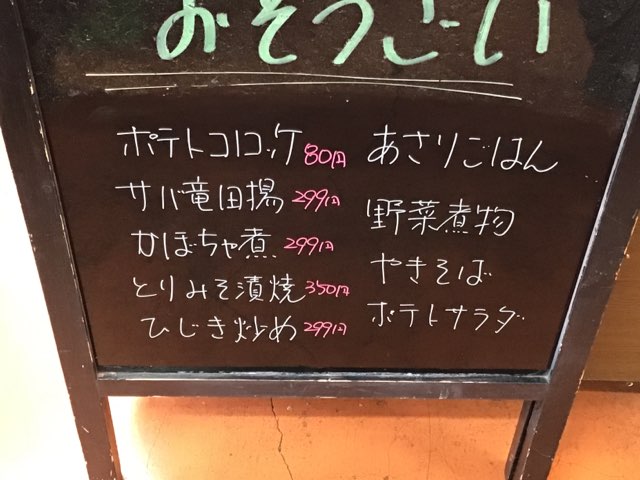 おそうざい
ポテトコロッケ 80円
サバ竜田揚 299円
かぼちゃ煮 299円
とりみそ漬焼 350円
ひじき炒め 299円
あさりごはん
野菜煮物
やきそば
ポテトサラダ